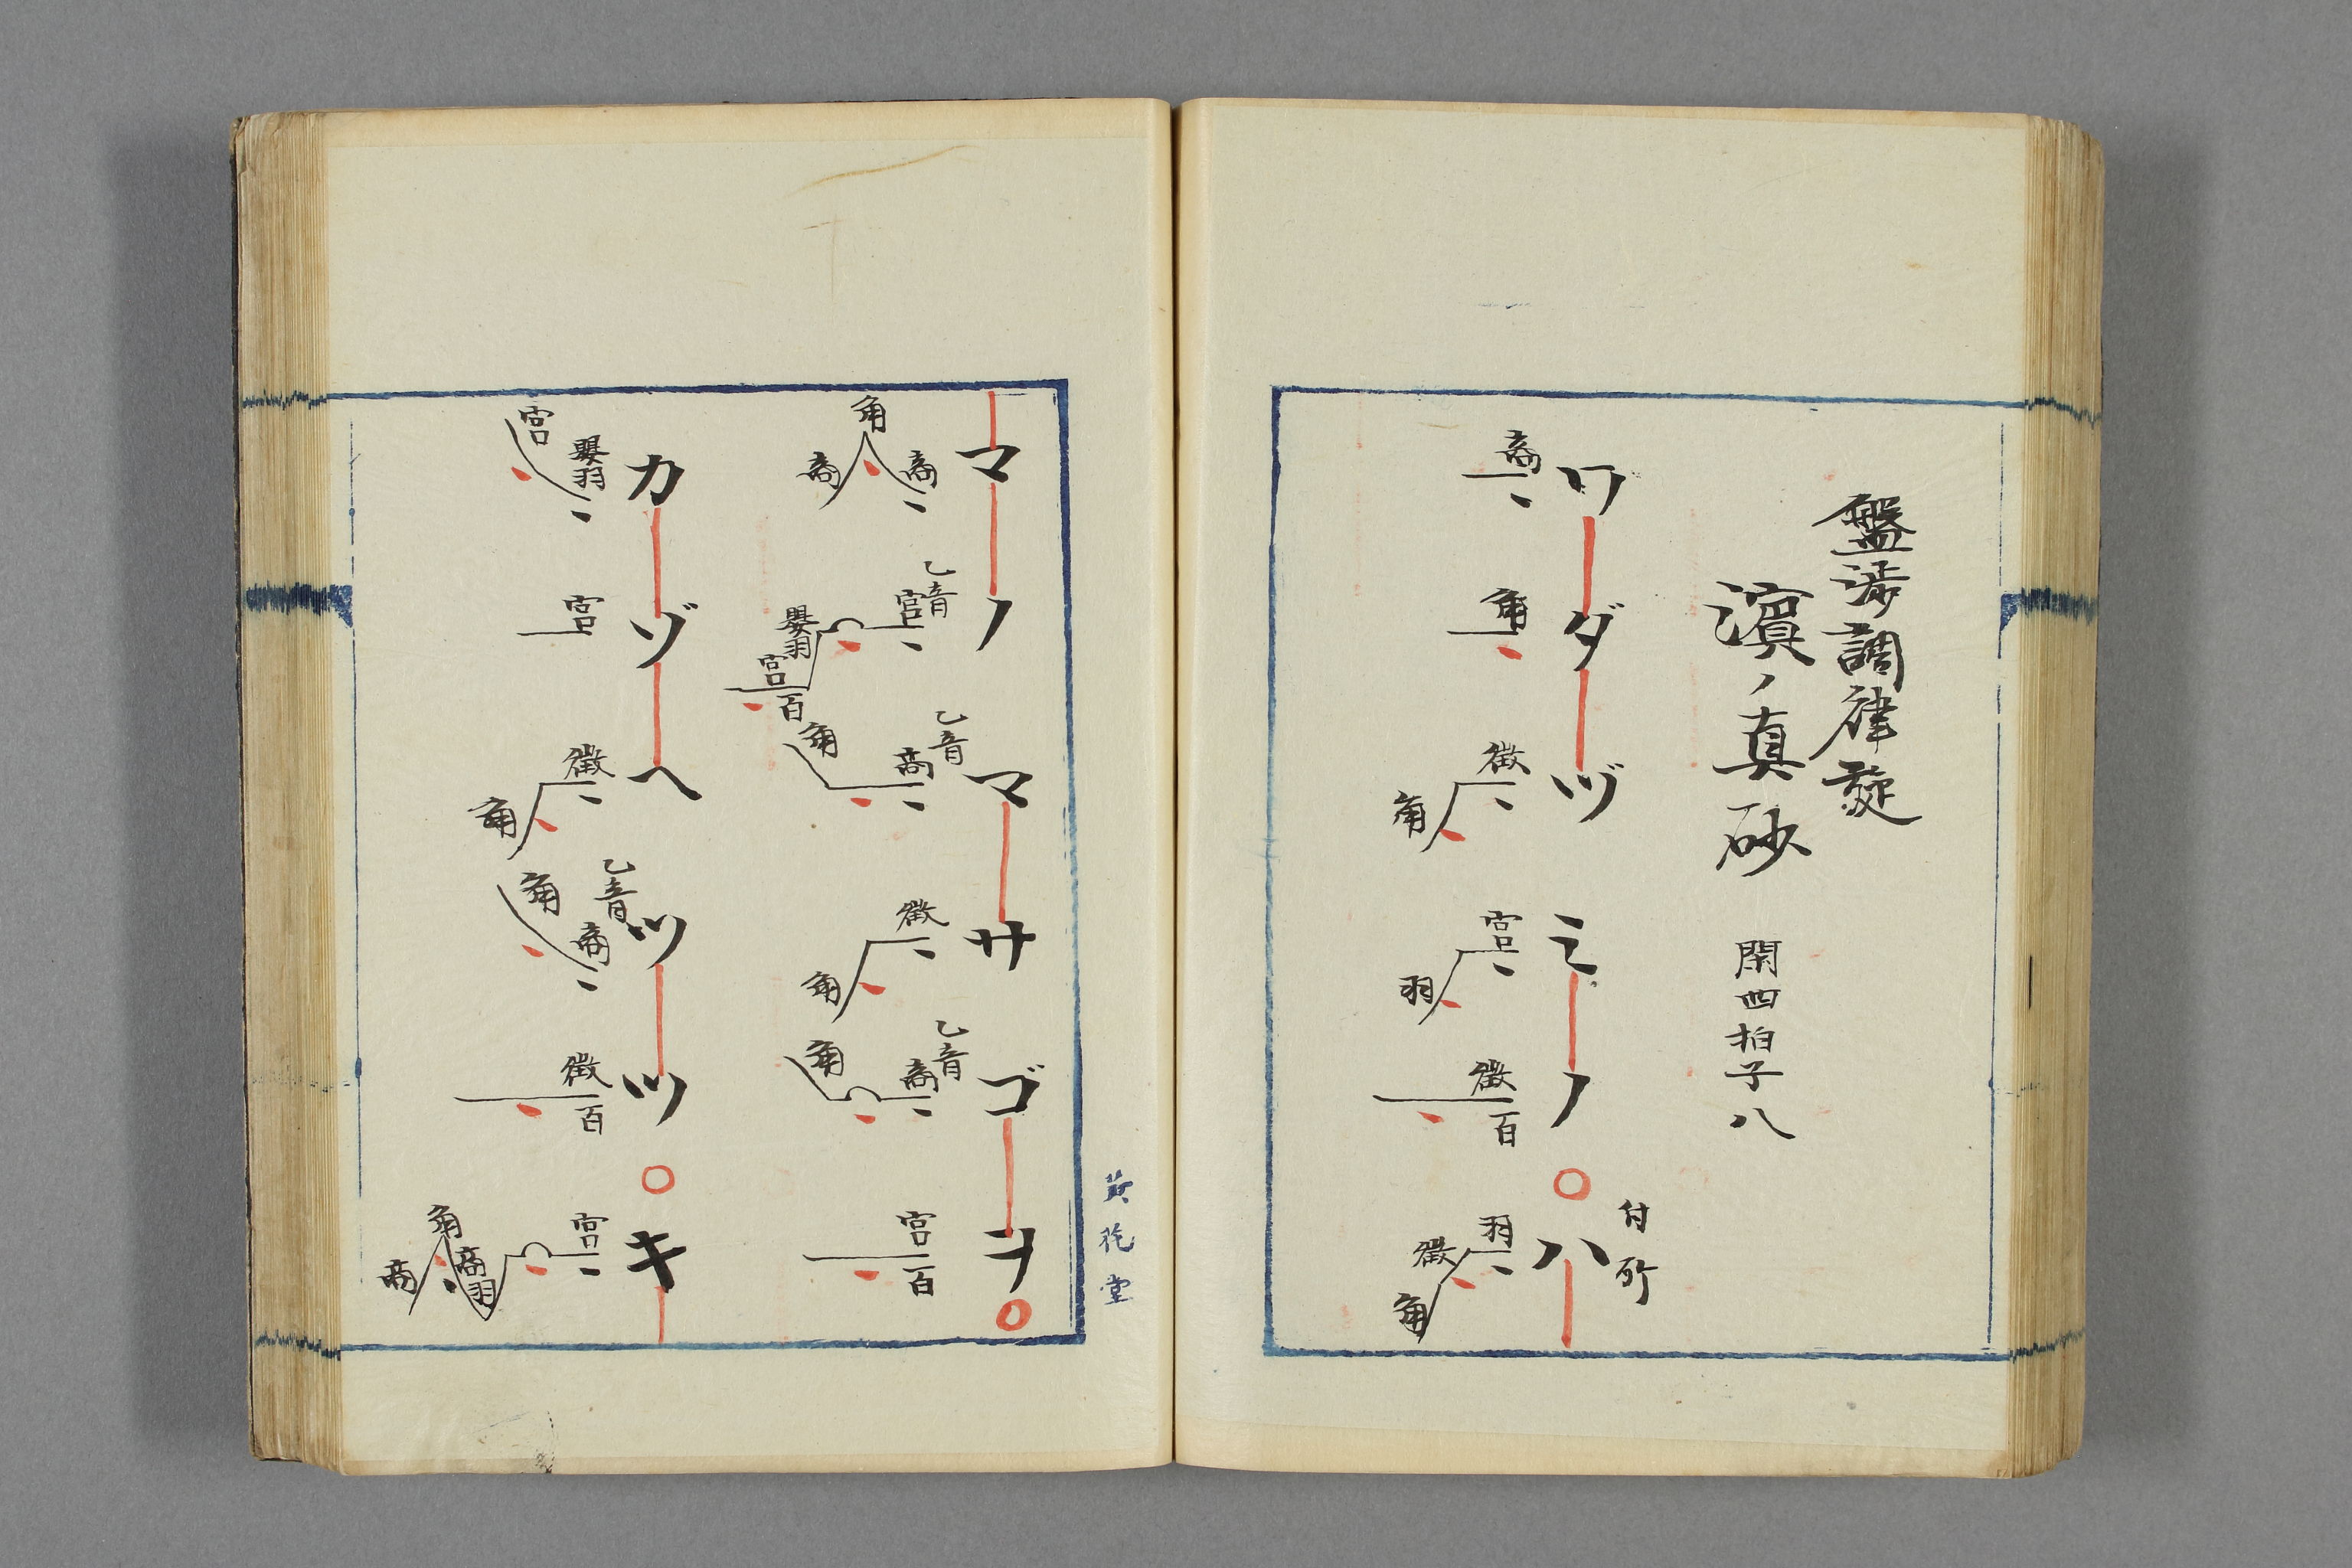 盤渉調律旋
濱ノ真砂 閑四拍子八
付所
ワダヅミノ○ハ
商 角 徴 角 宮 羽 徴 百 羽 徴 角
マノマサゴヲ○
商 角 商
乙音 宮 嬰羽 宮 百
乙音 商 角
徴 角
乙音 商 角
宮 百
カゾヘツツ○キ
嬰羽 宮
宮
徴 角
乙音 商 角
徴 百
宮 羽 商 角 商